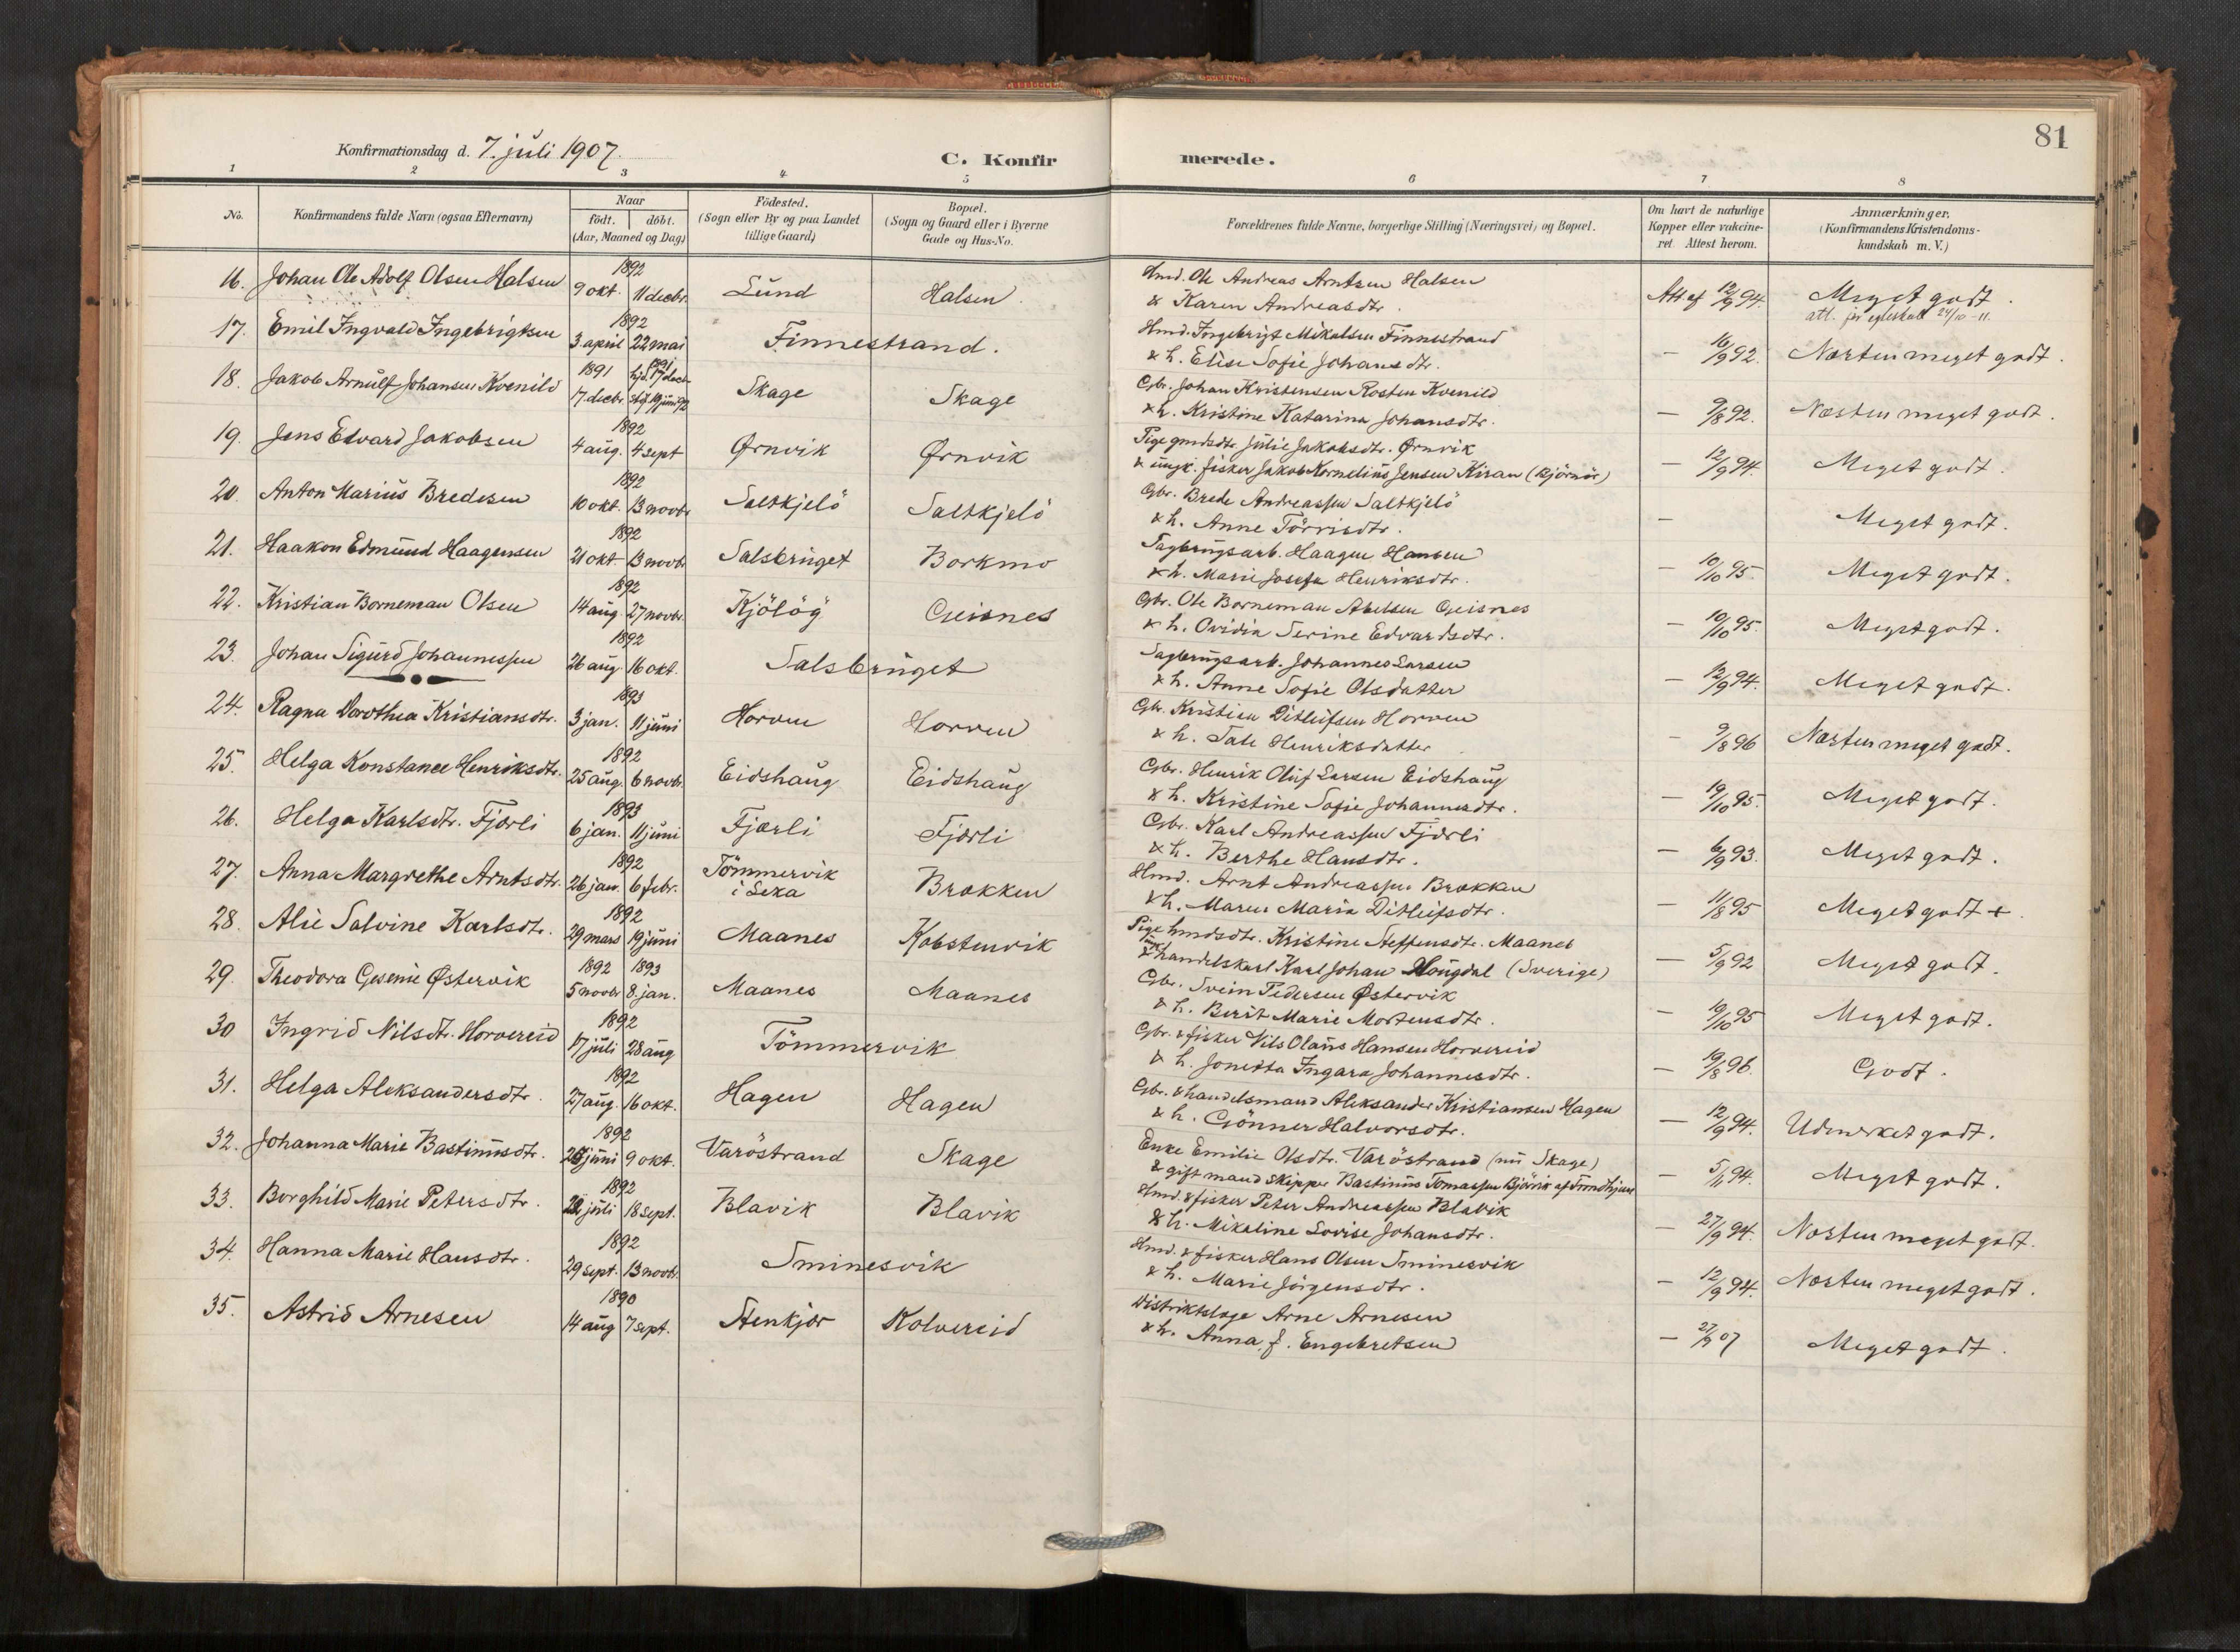 81
Konfirmationsdag d. 7. juli 1907.
C. Konfirmerede.
1 2 3 4 5 6 7 8
No. Konfirmandens fulde Navn (ogsaa Efternavn) Naar födt. döbt. (Aar, Maaned og Dag) Födested. (Sogn eller By og paa Landet tillige Gaard) Bopæl. (Sogn og Gaard eller i Byerne Gade og Hus-No. Forældrenes fulde Navne, borgerlige Stilling (Næringsvei) og Bopæl. Om havt de naturlige Kopper eller vakcineret. Attest herom. Anmærkninger. (Konfirmandens Kristendomskundskab m. V.)
16. Johan Ole Adolf Olsen Halsen 1892 9 okt. 11 decbr. Lund Halsen Hmd. Ole Andreas Arntsen Halsen & Karen Andreasdtr. Att. af 12/9 94. Meget godt.
att. 24/10-11.
17. Emil Ingvald Ingebrigtsen 1892 3. april 22 mai Finnestrand. Hmd. Ingebrigt Mikalsen Finnestrand & h. Elise Sofie Johansdtr. — 16/9 92. Næsten meget godt.
18. Jakob Arnulf Johansen Kvenild 1891 17. decbr. 1891 hjd. 17 decbr. stdf. 19 juni 92 Skage Skage Gbr. Johan Kristensen Rosten Kvenild & h. Kristine Katarina Johansdtr. — 9/8 92. Næsten meget godt.
19. Jens Edvard Jakobsen 1892 4 aug. 4 sept Ørnvik Ørnvik Pige gmdsdtr. Julie Jakobsdtr. Ørnvik & ungk. fisker Jakob Kornelius Jensen Kiran (Bjørnör) — 12/9 94. Meget godt.
20. Anton Marius Bredesen 1892 10 okt. 13 novbr Saltkjelö Saltkjelö Gbr. Brede Andreassen Saltkjelö & h. Anne Törrisdtr. — Meget godt.
21. Haakon Edmund Haagensen 1892 21 okt. 13 novbr Salsbruget Borkmo Sagbrugsarb. Haagen Hansen & h. Marie Josefa Henriksdtr. — 10/10 95. Meget godt.
22. Kristian Borneman Olsen 1892 14 aug. 27 novbr. Kjölög Geisnes Gbr. Ole Borneman Abelsen Geisnes & h. Ovidia Serine Edvardsdtr. — 10/10 95. Meget godt.
23. Johan Sigurd Johannessen 1892 26 aug. 16 okt. Salsbruget Sagbrugsarb. Johannes Larsen & h. Anne Sofie Olsdatter — 12/9 94. Meget godt.
24. Ragna Dorothea Kristiansdtr. 1893 3 jan. 11 juni Horven Horven Gbr. Kristian Ditlefsen Horven & h. Tale Henriksdatter — 9/8 96 Næsten meget godt.
25. Helga Konstance Henriksdtr. 1892 25 aug. 6 novbr. Eidshaug Eidshaug Gbr. Henrik Oluf Larsen Eidshaug & h. Kristine Sofie Johannesdtr. — 19/10 95. Meget godt.
26. Helga Karlsdtr. Fjærli 1893 6 jan. 11 juni Fjærli Fjærli Gbr. Karl Andreassen Fjærli & h. Berthe Hansdtr. — 6/9 93. Meget godt.
27. Anna Margrethe Arntsdtr. 1892 26 jan. 6 febr. Tömmervik i Leka Brækken Hmd. Arnt Andreassen Brækken & h. Maren Maria Ditlefsdtr. — 11/8 95 Meget godt +.
28. Alie Salvine Karlsdtr. 1892 29 mars 19 juni Maanes Kobstenvik Pige hmdsdtr. Kristine Steffensdtr. Maanes & ungk. handelskarl Karl Johan Haugdal (Sverige) — 5/9 92 Meget godt.
29. Theodora Gesenie Østervik 1892 5 novbr 1893 8. jan. Maanes Maanes Gbr. Svein Pedersen Østervik & h. Berit Marie Mortensdtr. — 19/10 95 Meget godt.
30 Ingrid Nilsdtr. Horvereid 1892 17 juli 28 aug Tömmervik Gbr. & fisker Nils Olaus Hansen Horvereid & h. Jonetta Ingara Johannesdtr. — 19/8 96. Godt.
31. Helga Aleksandersdtr. 1892 27 aug. 16 okt. Hagen Hagen Gbr. & handelsmand Aleksander Kristiansen Hagen & h. Gönner Halvorsdtr. — 12/9 94. Udmerket godt.
32. Johanna Marie Bastiansdtr. 1892 26 juni 9 okt. Varöstrand Skage Enke Emilie Olsdtr. Varöstrand (nu Skage) & gift mand skipper Bastinus Tomassen Bjørvik af Trondhjem — 5/11 94. Meget godt.
33. Borghild Marie Petersdtr. 1892 22 juli 18 sept. Blavik Blavik Hmd. & fisker Peter Andreassen Blavik & h. Mikaline Lovise Johansdtr. — 27/9 94. Næsten meget godt.
34. Hanna Marie Hansdtr. 1892 29 sept. 13 novbr. Sminesvik Hmd. & fisker Hans Olsen Sminesvik & h. Marie Jörgensdtr. — 12/9 94. Næsten meget godt.
35. Astrid Arnesen 1890 14 aug 7 sept. Stenkjær Kolvereid Distriktslæge Arne Arnesen & h. Anna f. Engebretsen — 27/ 07 Meget godt.